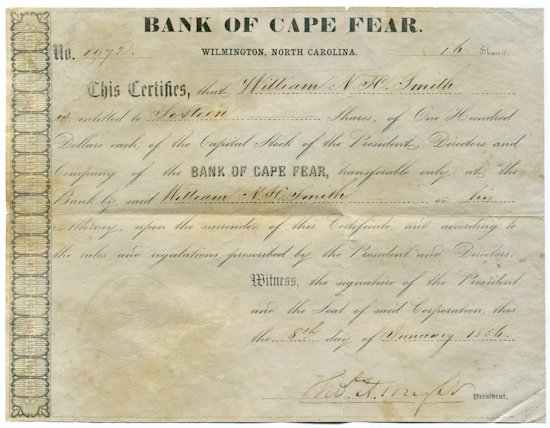 BANK OF CAPE FEAR.
No. 1972. WILMINGTON, NORTH CAROLINA. 16 Shares.
This Certifies, that William N. H. Smith
is entitled to Sixteen Shares, of One Hundred
Dollars each, of the Capital Stock of the President, Directors, and
Company of the BANK OF CAPE FEAR, transferable only at the
Bank by said William N. H. Smith or his
Attorney, upon the surrender of this Certificate, and according to
the rules and regulations prescribed by the President and Directors.
Witness, the signature of the President
and the Seal of said Corporation, this
the 8th day of January 1856.
Tho. H. Wright President.